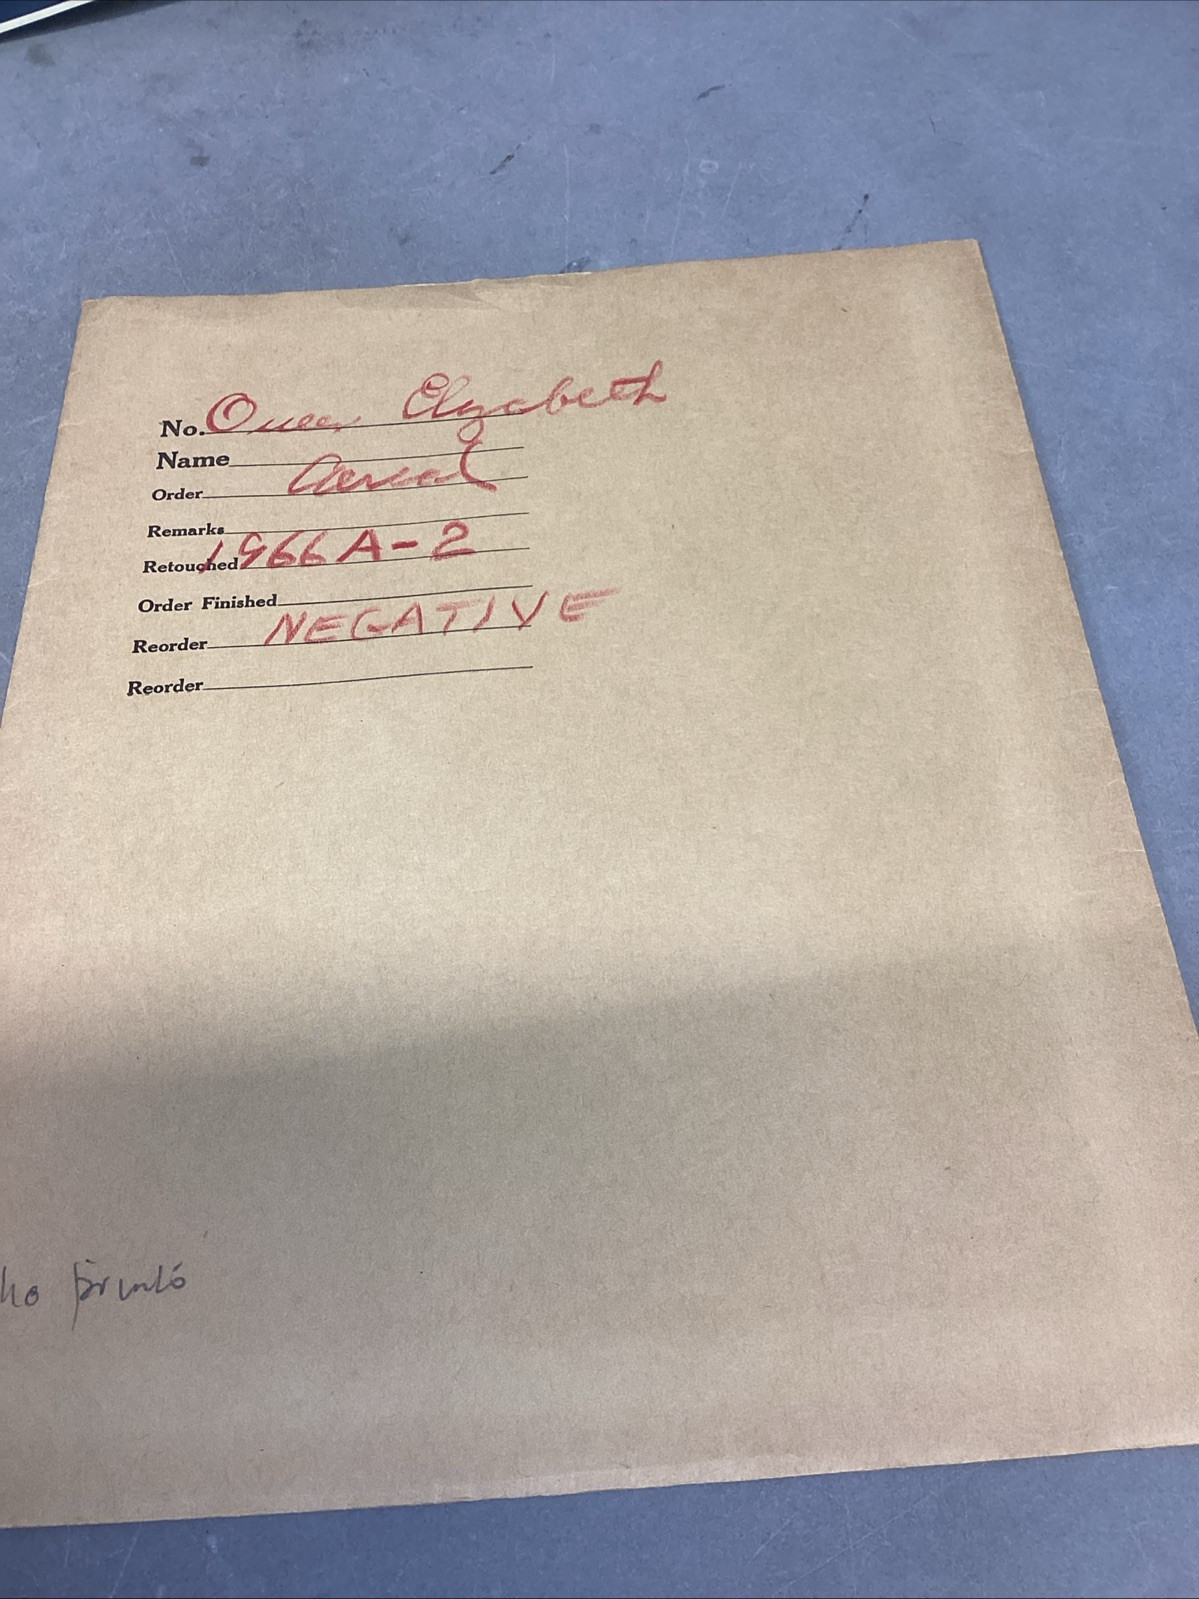 No. Queen Elizabeth
Name
Order Aerial
Remarks
Retouched 1966 A-2
Order Finished
Reorder NEGATIVE
Reorder